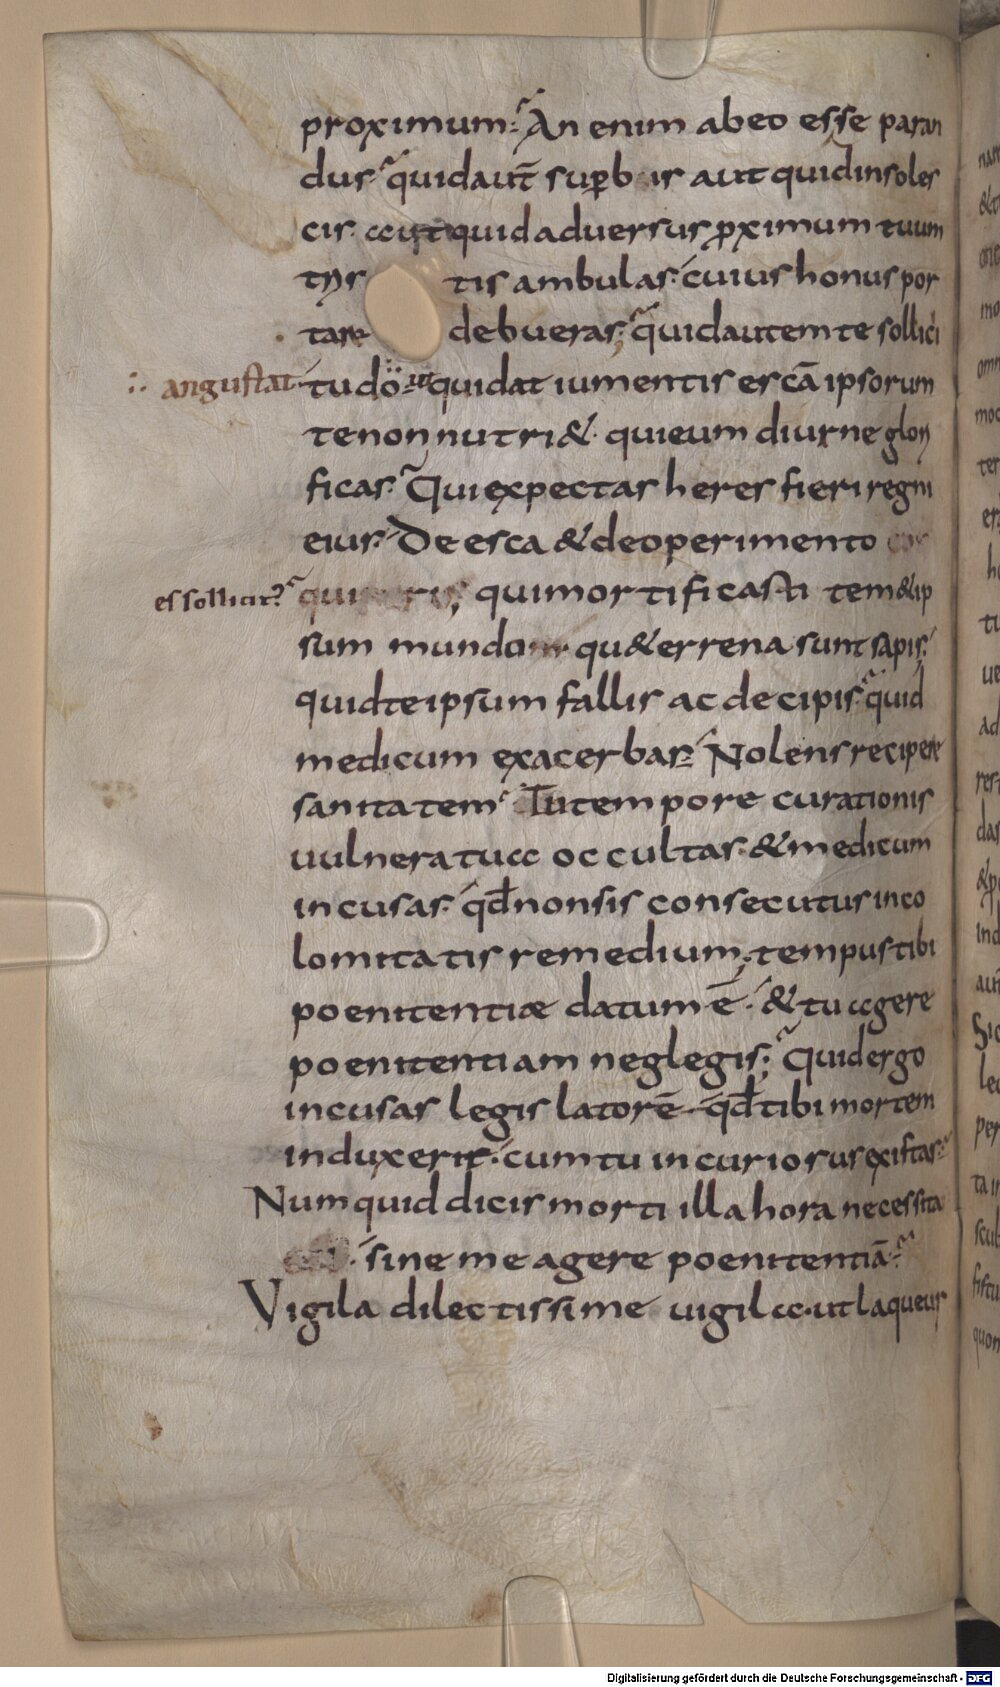 proximum. An enim ab eo esse paran
dus quid aut̄ suꝑb is aut quid insoles
cis aut quid adversus ꝓximum tuum
tis ambulas. cuius honus por
tare debueras. quid autem te sollici
angustat tudo ut qui dat iumentis escā ipsorum
te non nutri& qui eum diurne glori
ficas. Qui expectas heres fieri regni
eius. De esca & de operimento
es sollicit? qui mortificasti tem&ip
sum mundo qu&errena sunt sapis.
quid te ipsum fallis ac decipis. quid
medicum exacerbas. Nolens recipere
sanitatem Tu tempore curationis
vulnera tua occultas & medicum
incusas. qđ non sis consecutus inco
lomitatis remedium; tempus tibi
poenitentiae datum ē. & tu agere
poenitentiam neglegis; Quid ergo
incusas legis latorē qđ tibi mortem
induxerit. cum tu incuriosus existas.
Numquid dicis morti illa hora necessita
sine me agere poenitentiā.
Vigila dilectissime vigila. ut laqueus
Digitalisierung gefördert durch die Deutsche Forschungsgemeinschaft - DFG